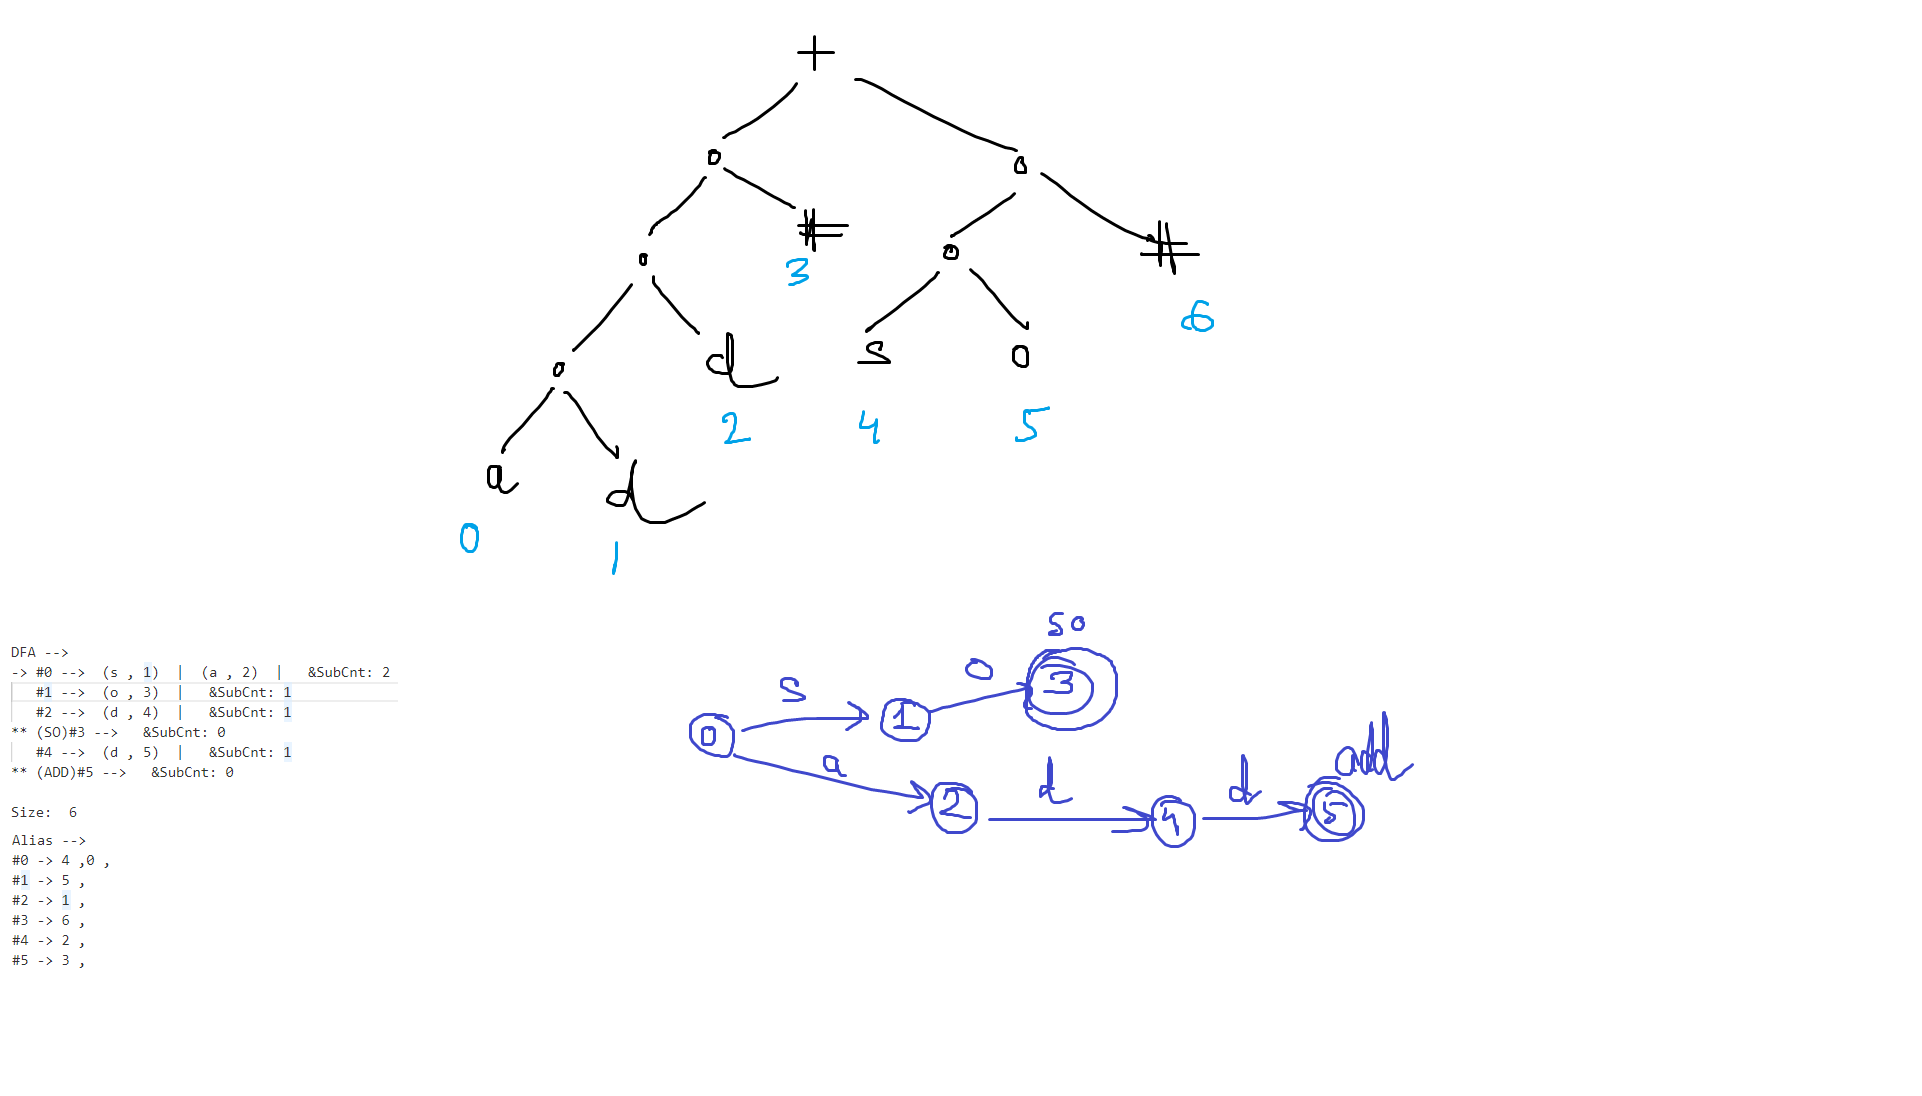 +
o
o
#
3
#
6
o
o
d
2
s
4
o
5
o
a
0
d
1
DFA -->
-> #0 --> (s , 1) | (a , 2) | &SubCnt: 2
#1 --> (o , 3) | &SubCnt: 1
#2 --> (d , 4) | &SubCnt: 1
** (SO)#3 --> &SubCnt: 0
#4 --> (d , 5) | &SubCnt: 1
** (ADD)#5 --> &SubCnt: 0
Size: 6
Alias -->
#0 -> 4 ,0 ,
#1 -> 5 ,
#2 -> 1 ,
#3 -> 6 ,
#4 -> 2 ,
#5 -> 3 ,
so
0
s
1
o
3
a
2
d
4
d
5
add